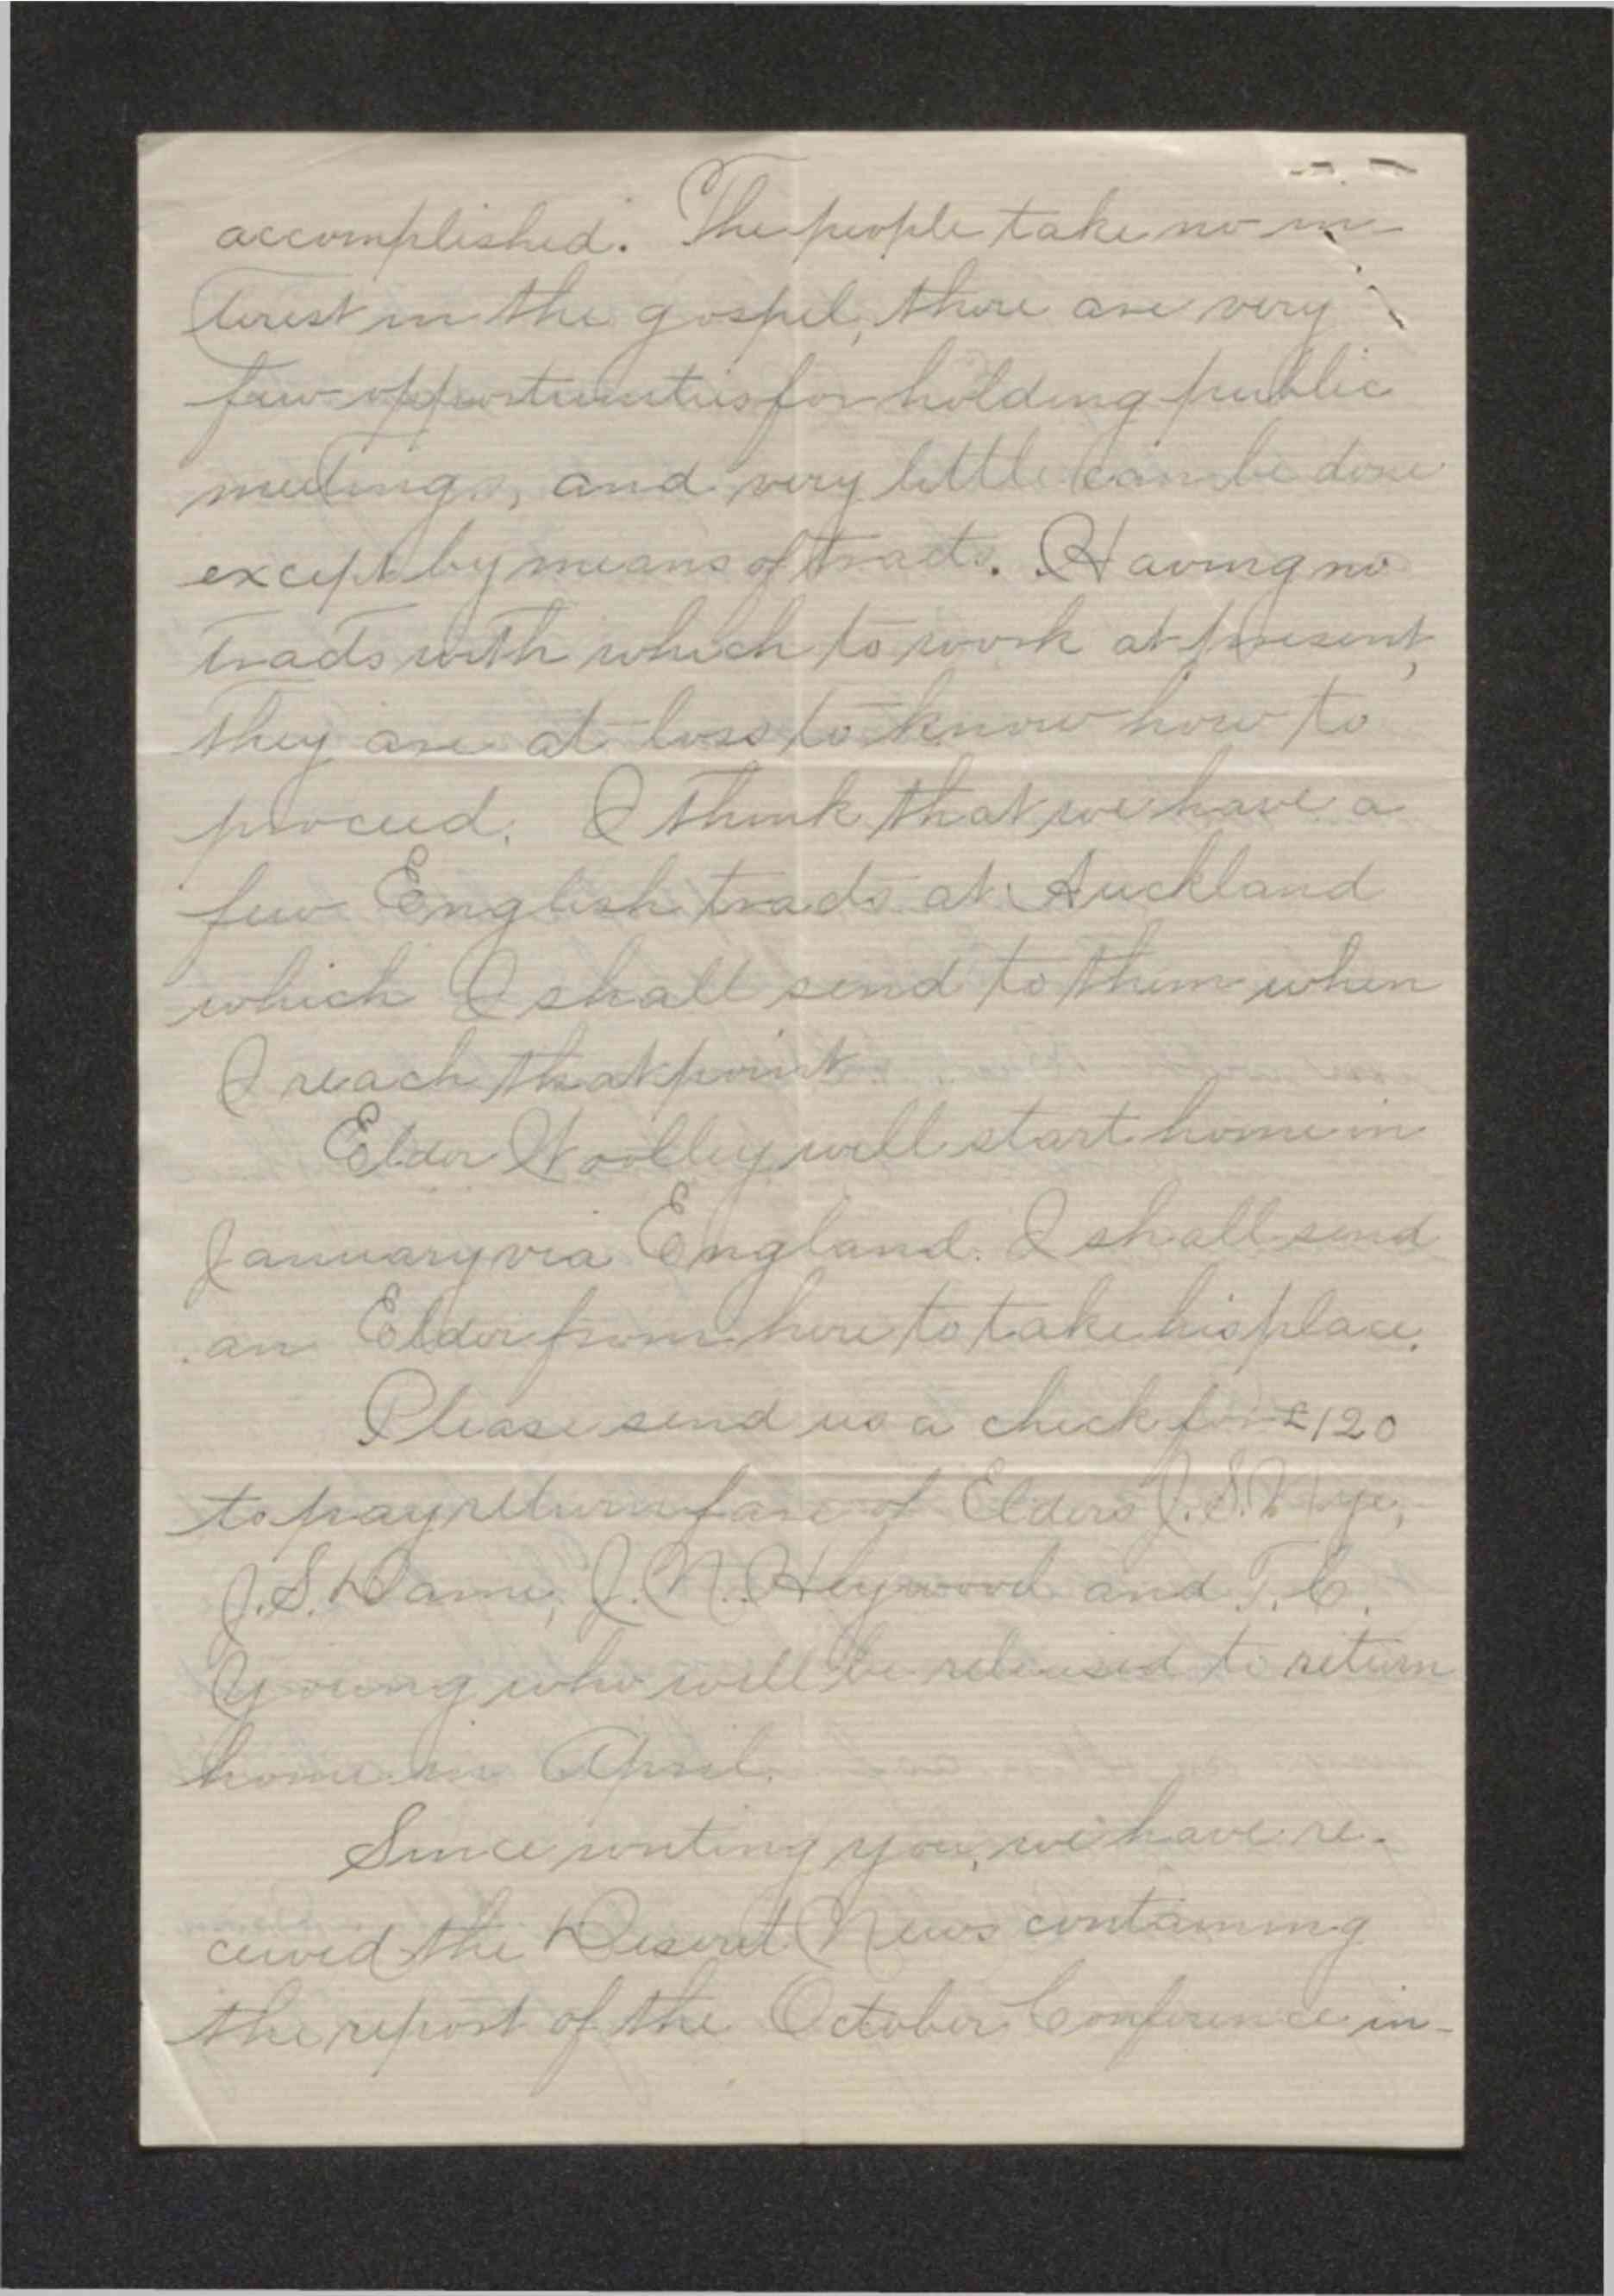 accomplished. The people take no in-
terest in the gospel, there are very
few opportunities for holding public
meetings, and very little can be done
except by means of tracts. Having no
tracts with which to work at present,
they are at loss to know how to
proceed. I think that we have a
few English tracts at Auckland
which I shall send to them when
I reach that point.
Elder Woolley will start home in
January via England. I shall send
an Elder from here to take his place.
Please send us a check for £120
to pay return fare of Elders J.S. Nye,
J.S. Dame, J.N. Heywood and T.C.
Young who will be released to return
home in April.
Since writing you, we have re-
ceived the Deseret News containing
the report of the October Conference in-